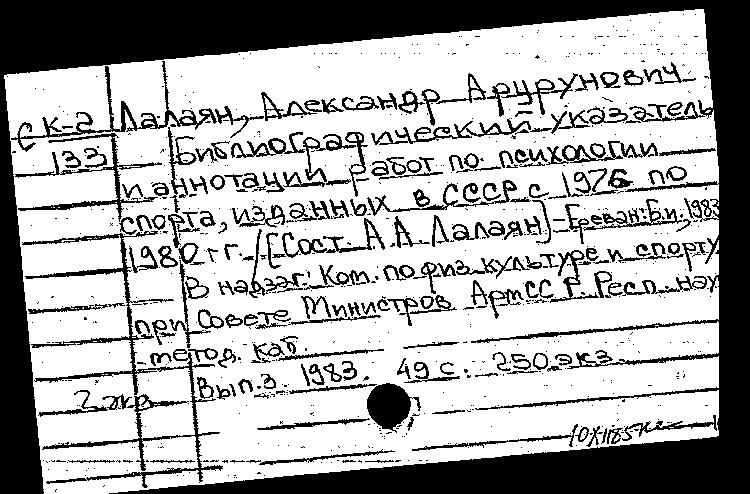 С К-2 Лалаян, Александр Арурунович
133 Библиографический указатель
и аннотации работ по психологии
спорта, изданных в СССР с 1976 по
1980 гг. /[Сост. А.А. Лалаян] - Ереван: Б.и., 1983
В надзаг: Ком. по физ. культуре и спорту
при Совете Министров АрмССР. Респ. науч
метод. каб.
Вып. 3. 1983. 49 с. 250 экз.
2 экз